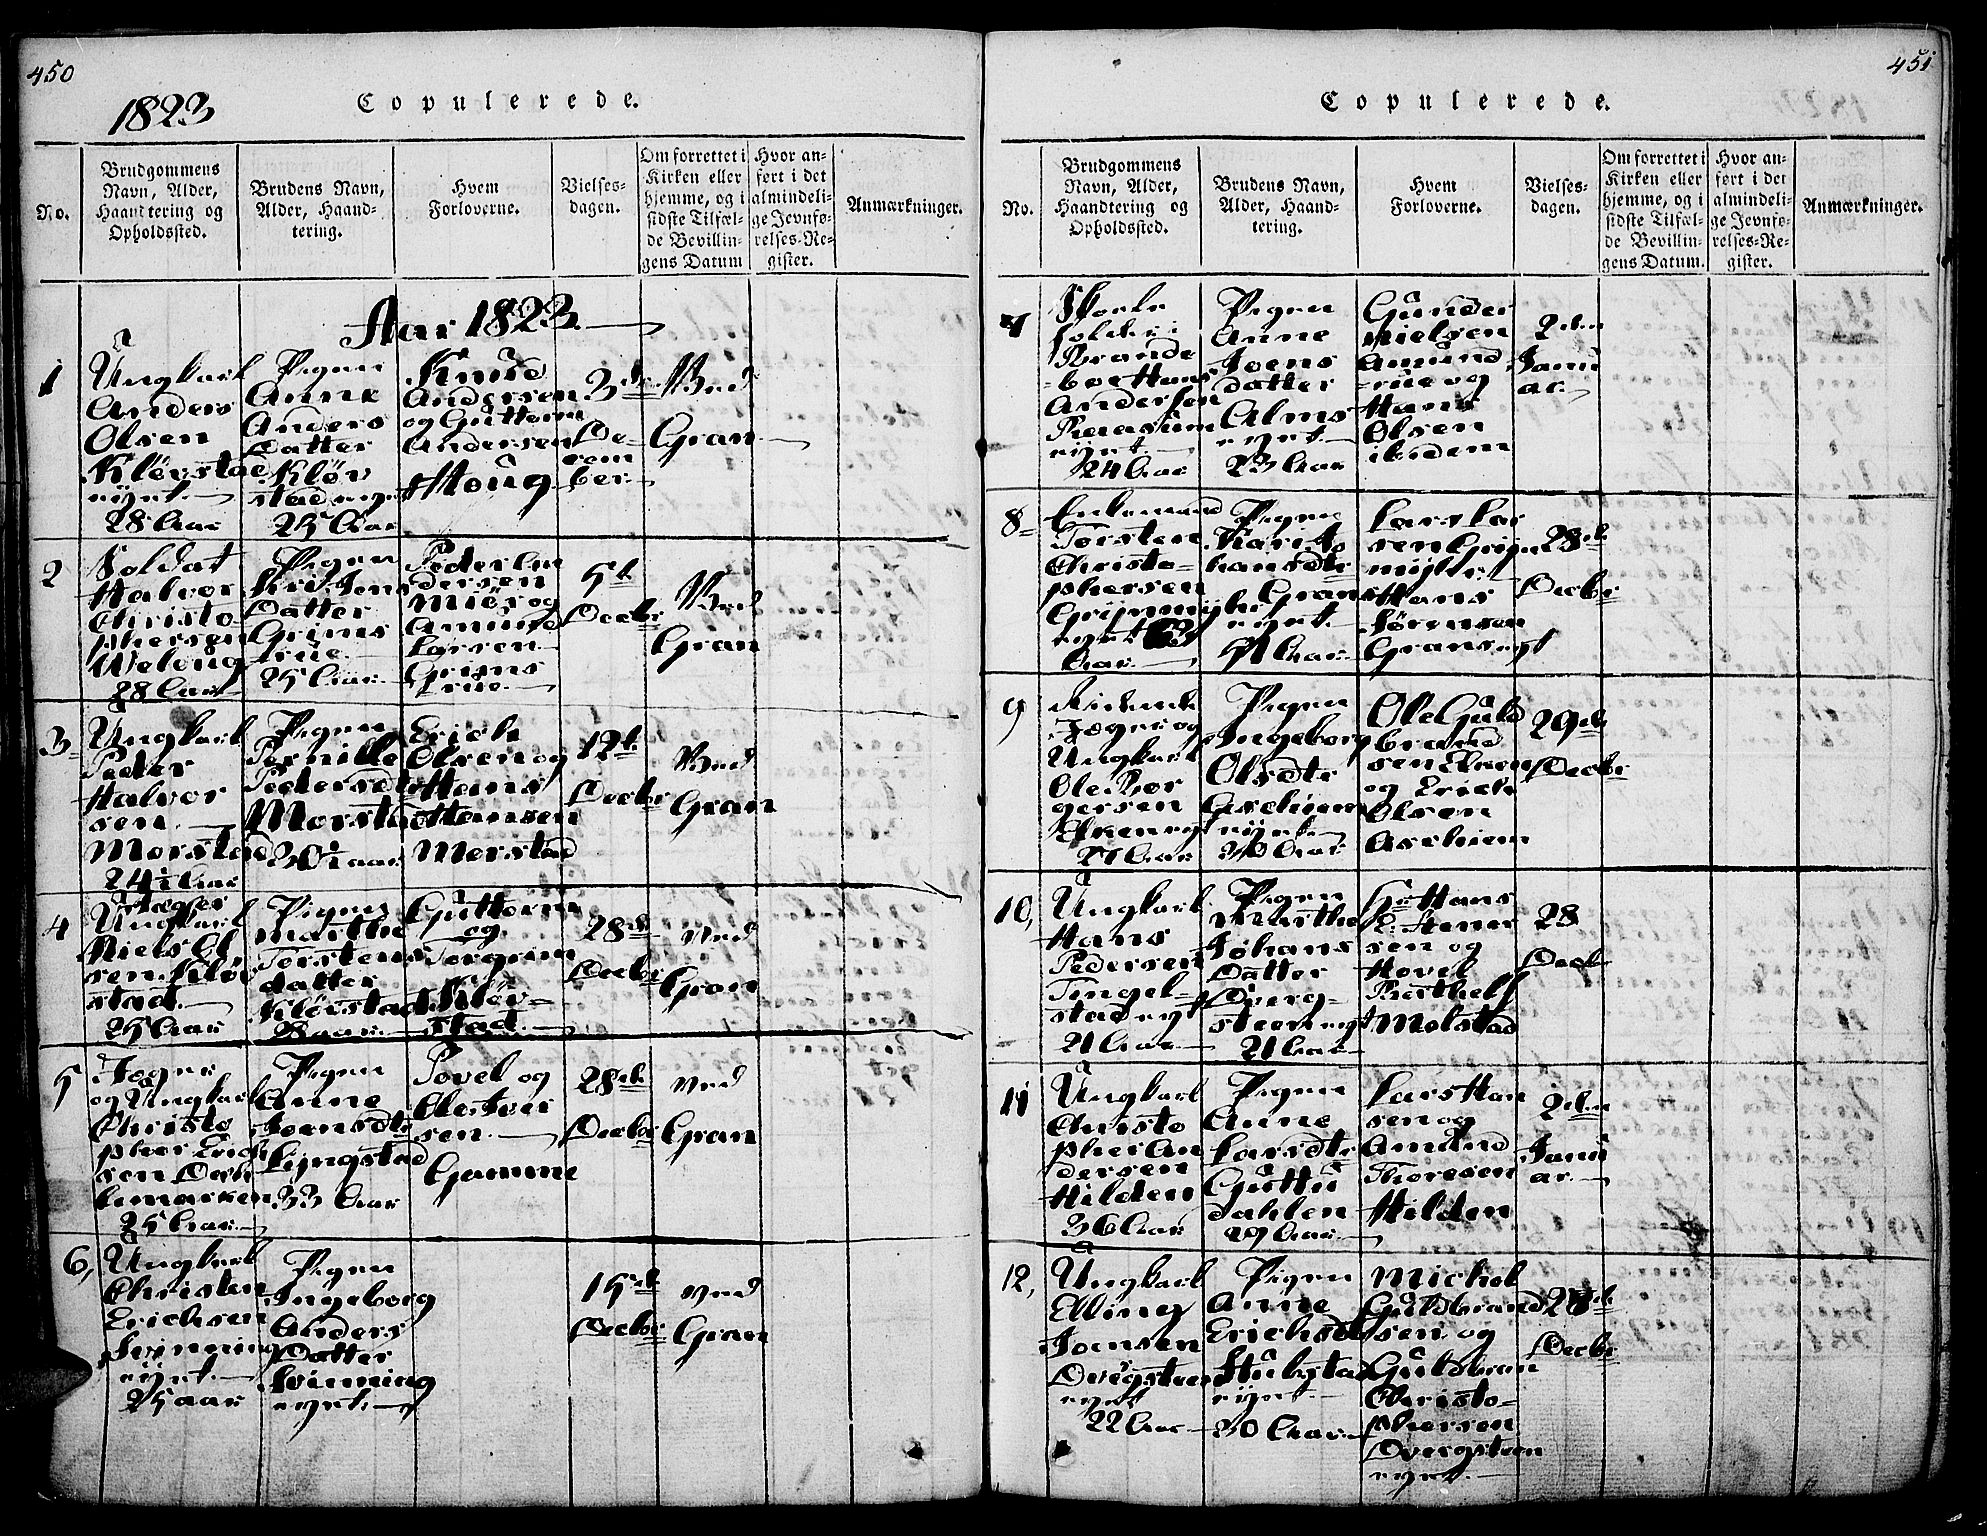 450
1823
Copulerede.
No.
Brudgommens
Navn, Alder,
Haandtering og
Opholdssted.
Brudens Navn,
Alder, Haand-
tering.
Hvem
Forloverne.
Vielses-
dagen.
Om forrettet i
Kirken eller
hjemme, og i
sidste Tilfæl-
de Bevillin-
gens Datum
Hvor an-
ført i det
almindeli-
ge Jevnfø-
relses-Re-
gister.
Anmærkninger.
Aar 1823.
1
Ungkarl
Anders
Olsen
Kløvstad
eynt.
28 Aar
Pigen
Anne
Anders
Datter
Kløv
stad
25 Aar
Knud
Andersen
og Guttorm
Andersen
Houg
3de
De-
cem
ber
Ved
Gran
2
Soldat
Halvor
Christo
phersen
28 Aar
Pigen
Jens
Datter
Grims
rue
25 Aar
Peder
dersen
Miør og
Amund
Larsen
Grims
rue
5t
Decbr
Ved
Gran
3
Ungkarl
Peder
Halvor
sen
Morstad
24½ Aar
Pigen
Pernille
Pedersdtr
Morstad
20½ aar
Erich
Olsen og
Hans
Hansen
Morstad
12t
Decbr
Ved
Gran
4
Jæger
Ungkarl
Niels Ol
sen Kløv
stad
25 Aar
Pigen
Marthe
Torstens
datter
Kløvstad
28 aar
Guttorm
og
Torgrim
Kløv-
stad
28de
Decbr
ved
Gran
5
Jæger
og Ungkarl
Christo
pher Erich
sen
lemarken
25 Aar
Pigen
Anne
Joensdtr
Lyngstad
33 Aar
Povel og
Ole Iver
sen
Gamme
28de
Decbr
ved
Gran
6,
Ungkarl
Christen
Erichsen
Svinning
eynt
25 aar
Pigen
Ingeborg
Anders
Datter
Svinning
eynt
15de
Decbr
ved
Gran
451
Copulerede.
No.
Brudgommens
Navn, Alder,
Haandtering og
Opholdssted.
Brudens Navn,
Alder, Haand-
tering.
Hvem
Forloverne.
Vielses-
dagen.
Om forrettet i
Kirken eller
hjemme, og i
sidste Tilfæl-
de Bevillin-
gens Datum.
Hvor an-
ført i det
almindeli-
ge Jevnfø-
relses-Re-
gister.
Anmærkninger.
7
Skole
holder i
Brande
boe Hans
Andersen
eynt
24 Aar
Pigen
Anne
Joens
datter
Alms
eynt
23 Aar
Gunder
Nielsen
Amund
rue og
Hans
Olsen
ibidem
2den
Janu
ar
8
Enkemand
Torsten
Christo-
phersen
eynt 63
Aar
Pigen
Kari Jo
hansdtr
Grans
eynt
51 Aar
Lars Lar
sen
Hans
Sørensen
Grans eyt
28de
Decbr
9
Jæger og
Ungkarl
Ole Bor
gersen
eyt
27 Aar
Pigen
Ingeborg
Olsdtr
Aschiem
eynt
30 Aar
Ole Guld
brand
sen
og Erich
Olsen
Aschiem
29de
Decbr
10,
Ungkarl
Hans
Pedersen
Tingel-
stad eyt
21 Aar
Pigen
Marthe
Johans
Datter
Dverg-
steen eyt
21 Aar
Hr Hans
Stener
sen og
Hovel
Molstad
28
Decbr
11
Ungkarl
Christo
pher An
dersen
Hilden
36 Aar
Pigen
Anne
Larsdtr
Guttu
dahlen
29 Aar
Lars Han
sen og
Amund
Thoresen
Hilden
2den
Janu
ar
12,
Ungkarl
Elling
Joensen
Dvergsteen
eynt
22 Aar
Pigen
Anne
Erichsdtr
Hubstad
eynt
30 Aar
Michel
Guldbrand
sen og
Guldbran
Christo-
phersen
Dvergsteen
eynt
28de
Decbr